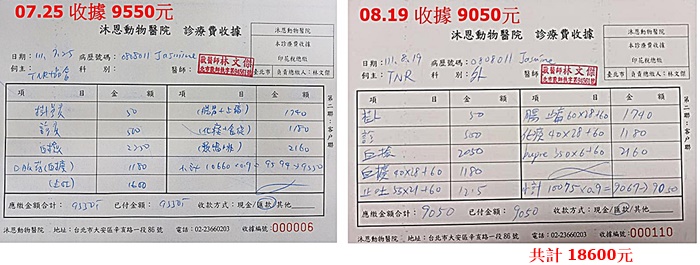 07.25 收據 9550元
沐恩動物醫院 診療費收據
沐恩動物醫院
本診療費收據
印花稅總繳
臺北市 負責總繳人:林文傑
日期: 111. 7.25 病歷號碼: 0808011 Jasmine
飼主: TNR協會 科 別: 醫師:
獸醫師林文傑
項 目 金 額 項 目 金 額
掛號費 50 1740
診 500 1180
血檢 2250 2160
1180 小計 10660×0.9=9594→9550
1600
應繳金額合計: 9550元 已付金額: 9550元 收款方式:現金/匯款/其他
沐恩動物醫院 地址:台北市大安區辛亥路一段86號 電話:02-23660203 收據編號:000006
第二聯:客戶聯
08.19 收據 9050元
沐恩動物醫院 診療費收據
沐恩動物醫院
本診療費收據
印花稅總繳
臺北市 負責總繳人:林文傑
日期: 111. 8.19 病歷號碼: 0808011 Jasmine
飼主: TNR 科 別: 外 醫師:
獸醫師林文傑
項 目 金 額 項 目 金 額
掛 50 60×28+60 1740
診 500 40×28+60 1180
血檢 2050 350×6+60 2160
40×28+60 1180
55×21+60 1215 小計 10075×0.9=9067→9050
應繳金額合計: 9050 已付金額: 9050 收款方式:現金/匯款/其他
沐恩動物醫院 地址:台北市大安區辛亥路一段86號 電話:02-23660203 收據編號:000110
第二聯:客戶聯
共計 18600元